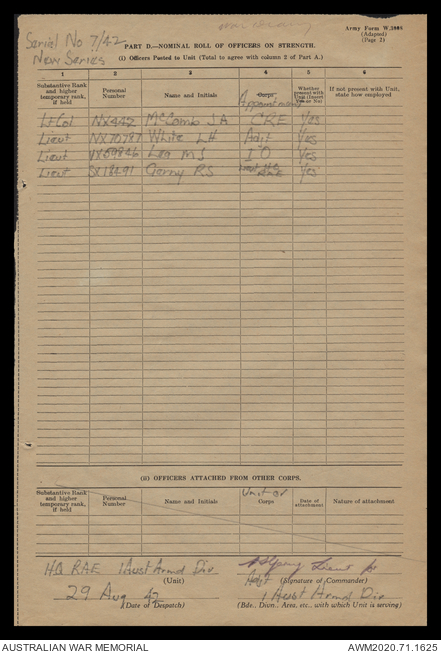 Army Form W.3008
(Adapted)
(Page 2)
Serial No 7/42
New Series
PART D.—NOMINAL ROLL OF OFFICERS ON STRENGTH.
(i) Officers Posted to Unit (Total to agree with column 2 of Part A.)
1 2 3 4 5 6
Substantive Rank and higher temporary rank, if held | Personal Number | Name and Initials | Corps Appointment | Whether present with Unit (Insert Yes or No) | If not present with Unit, state how employed
Lt Col NX442 McComb JA CRE Yes
Lieut NX70787 White LH Adjt Yes
Lieut VX59846 MS IO Yes
Lieut RS Yes
(ii) OFFICERS ATTACHED FROM OTHER CORPS.
Substantive Rank and higher temporary rank, if held | Personal Number | Name and Initials | Unit or Corps | Date of attachment | Nature of attachment
HQ RAE 1 Aust Armd Div Lieut
(Unit) Adjt (Signature of Commander)
29 Aug 42 1 Aust Armd Div
(Date of Despatch) (Bde., Divn., Area, etc., with which Unit is serving)
AUSTRALIAN WAR MEMORIAL AWM2020.71.1625